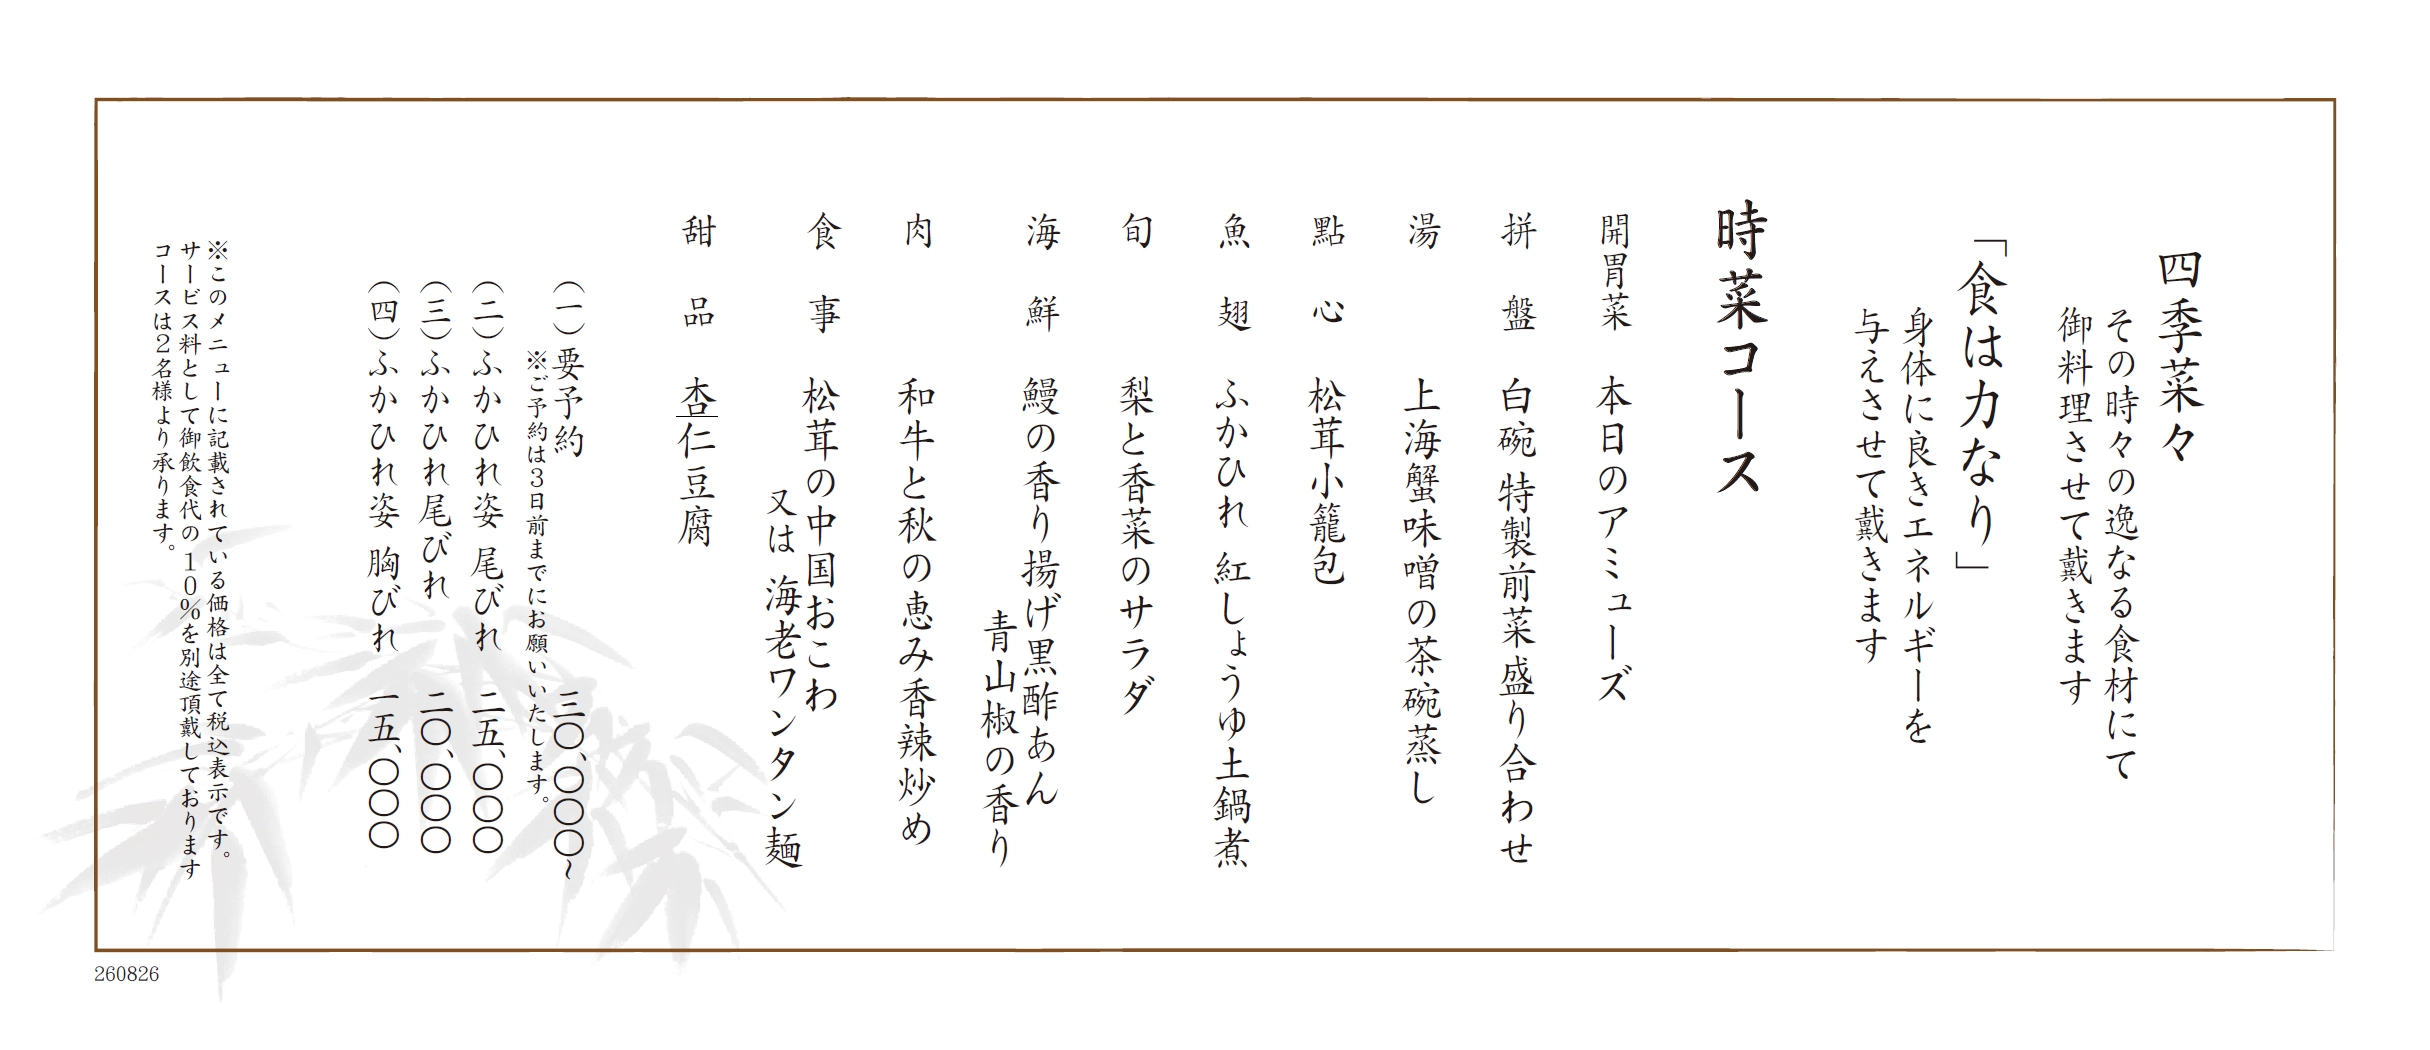 四季菜々
その時々の逸なる食材にて
御料理させて戴きます
「食は力なり」
身体に良きエネルギーを
与えさせて戴きます
時菜コース
開胃菜 本日のアミューズ
拼盤 白碗 特製前菜盛り合わせ
湯 上海蟹味噌の茶碗蒸し
點心 松茸小籠包
魚翅 ふかひれ 紅しょうゆ土鍋煮
旬 梨と香菜のサラダ
海鮮 鰻の香り揚げ黒酢あん
青山椒の香り
肉 和牛と秋の恵み香辣炒め
食事 松茸の中国おこわ
又は 海老ワンタン麺
甜品 杏仁豆腐
（一）要予約 三〇、〇〇〇~
※ご予約は3日前までにお願いいたします。
（二）ふかひれ姿 尾びれ 二五、〇〇〇
（三）ふかひれ尾びれ 二〇、〇〇〇
（四）ふかひれ姿 胸びれ 一五、〇〇〇
※このメニューに記載されている価格は全て税込表示です。
サービス料として御飲食代の10%を別途頂戴しております
コースは2名様より承ります。
260826